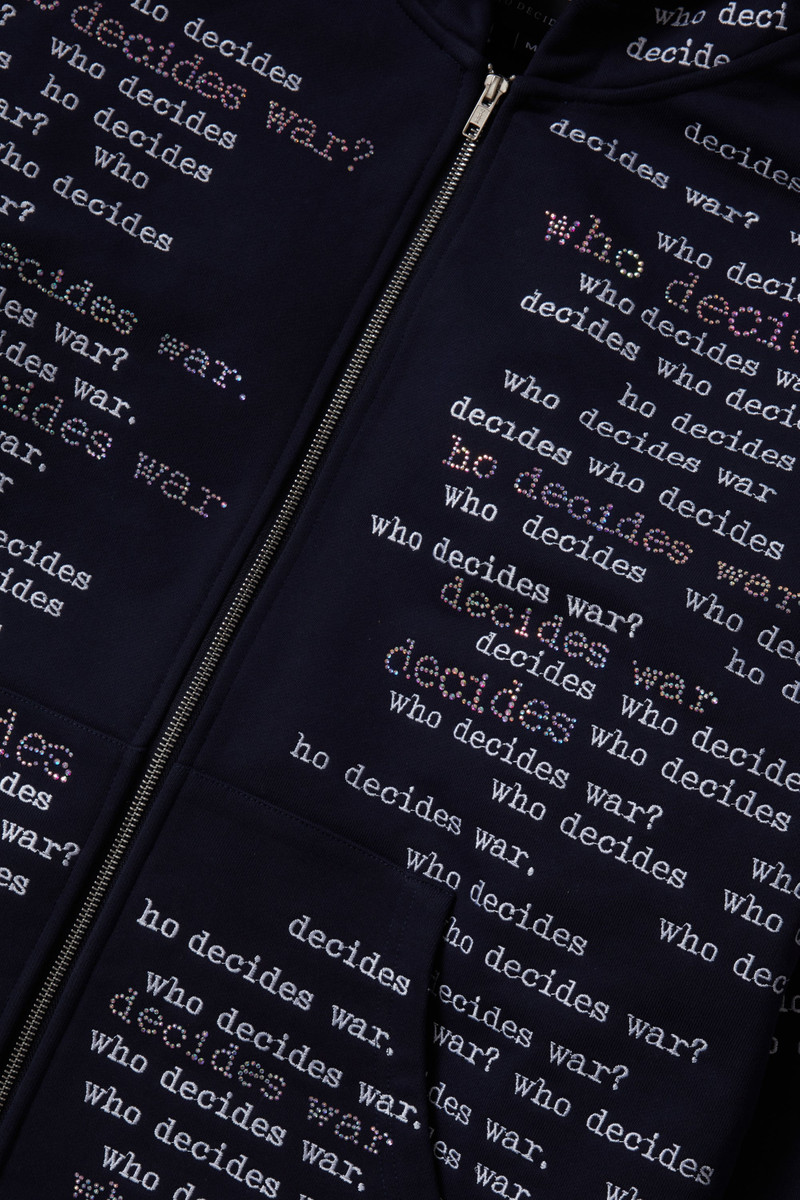 ho decides
decides war?
who decides
ho decides
ar? who
ho decides
r?
ecides war.
des war?
ides war.
cides war
ar.
r
ecides
ides
des
des
war?
es
DECID
M
who deci
decide
decides
decides war? w
who deci
who deci
who decides wa
decides who deci
ho decides
who decides war
decides who decides
ho decides war
who decides
who decides war? who dec
decides war ho d
decides
decides who decides
who decides war?
who decides
who decides
ho decides war.
who
who decides who
who dec
ho decides war?
ecides war?
war? who decides
des war.
es war. who
decides
ho decides war.
who decides war.
decides war
who decides war.
who decides
who